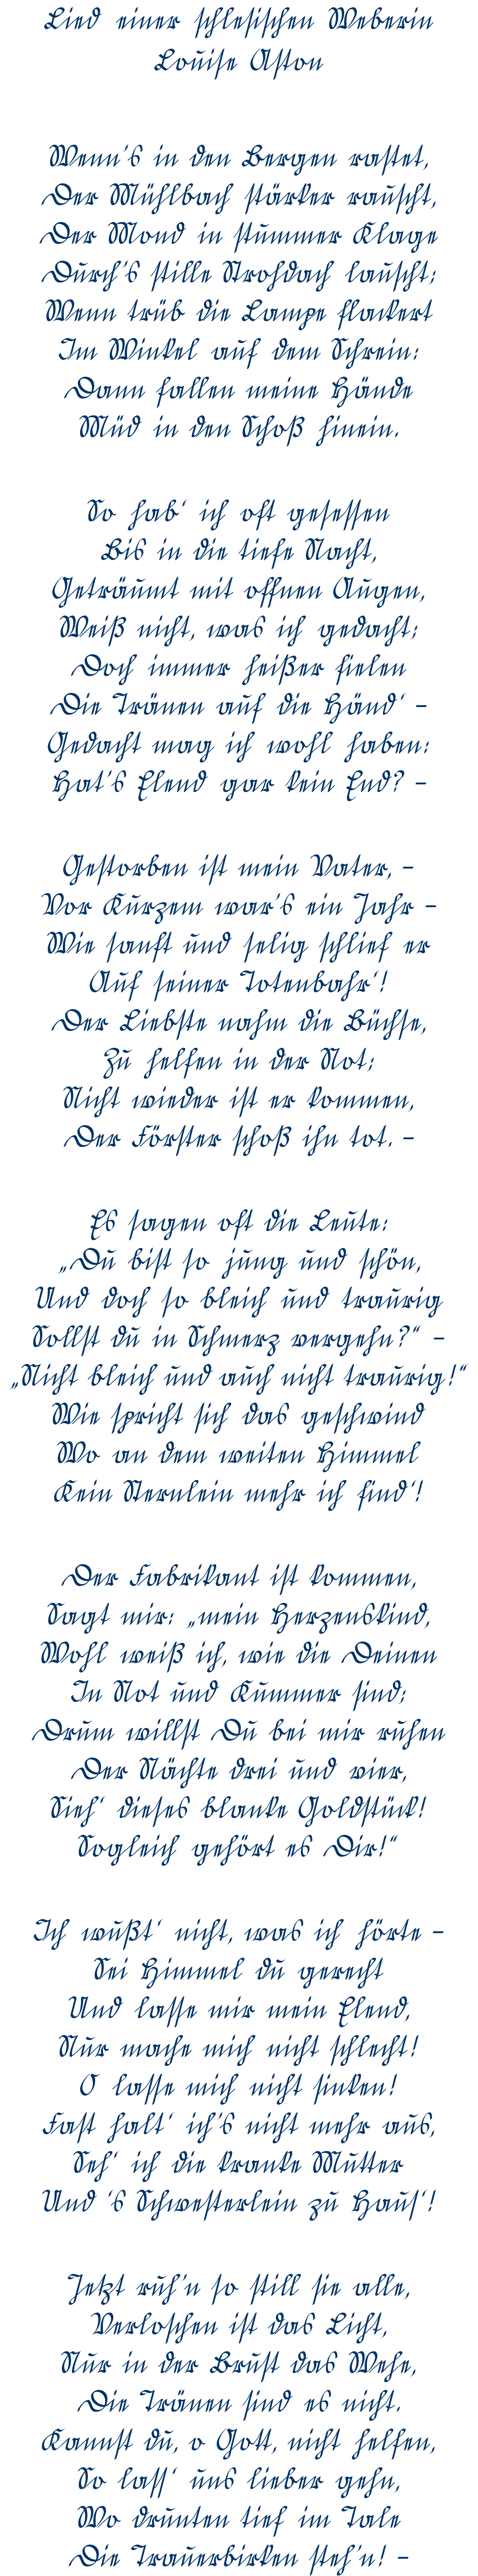 Lied einer schlesischen Weberin
Louise Aston
Wenn's in den Bergen rastet,
Der Mühlbach stärker rauscht,
Der Mond in stummer Klage
Durch's stille Strohdach lauscht;
Wenn trüb die Lampe flackert
Im Winkel auf dem Schrein:
Dann fallen meine Hände
Müd in den Schoß hinein.
So hab' ich oft gesessen
Bis in die tiefe Nacht,
Geträumt mit offnen Augen,
Weiß nicht, was ich gedacht;
Doch immer heißer fielen
Die Tränen auf die Händ' –
Gedacht mag ich wohl haben:
Hat's Elend gar kein End? –
Gestorben ist mein Vater, –
Vor Kurzem war's ein Jahr –
Wie sanft und selig schlief er
Auf seiner Totenbahr'!
Der Liebste nahm die Büchse,
Zu helfen in der Not;
Nicht wieder ist er kommen,
Der Förster schoß ihn tot. –
Es sagen oft die Leute:
„Du bist so jung und schön,
Und doch so bleich und traurig
Sollst du in Schmerz vergehn?“ –
„Nicht bleich und auch nicht traurig!“
Wie spricht sich das geschwind
Wo an dem weiten Himmel
Kein Sternlein mehr ich find'!
Der Fabrikant ist kommen,
Sagt mir: „mein Herzenskind,
Wohl weiß ich, wie die Deinen
In Not und Kummer sind;
Drum willst Du bei mir ruhen
Der Nächte drei und vier,
Sieh' dieses blanke Goldstück!
Sogleich gehört es Dir!“
Ich wußt' nicht, was ich hörte –
Sei Himmel du gerecht
Und lasse mir mein Elend,
Nur mache mich nicht schlecht!
O lasse mich nicht sinken!
Fast halt' ich's nicht mehr aus,
Seh' ich die kranke Mutter
Und 's Schwesterlein zu Haus'!
Jetzt ruh'n so still sie alle,
Verloschen ist das Licht,
Nur in der Brust das Wehe,
Die Tränen sind es nicht.
Kannst du, o Gott, nicht helfen,
So lass' uns lieber gehn,
Wo drunten tief im Tale
Die Trauerbirken steh'n! –